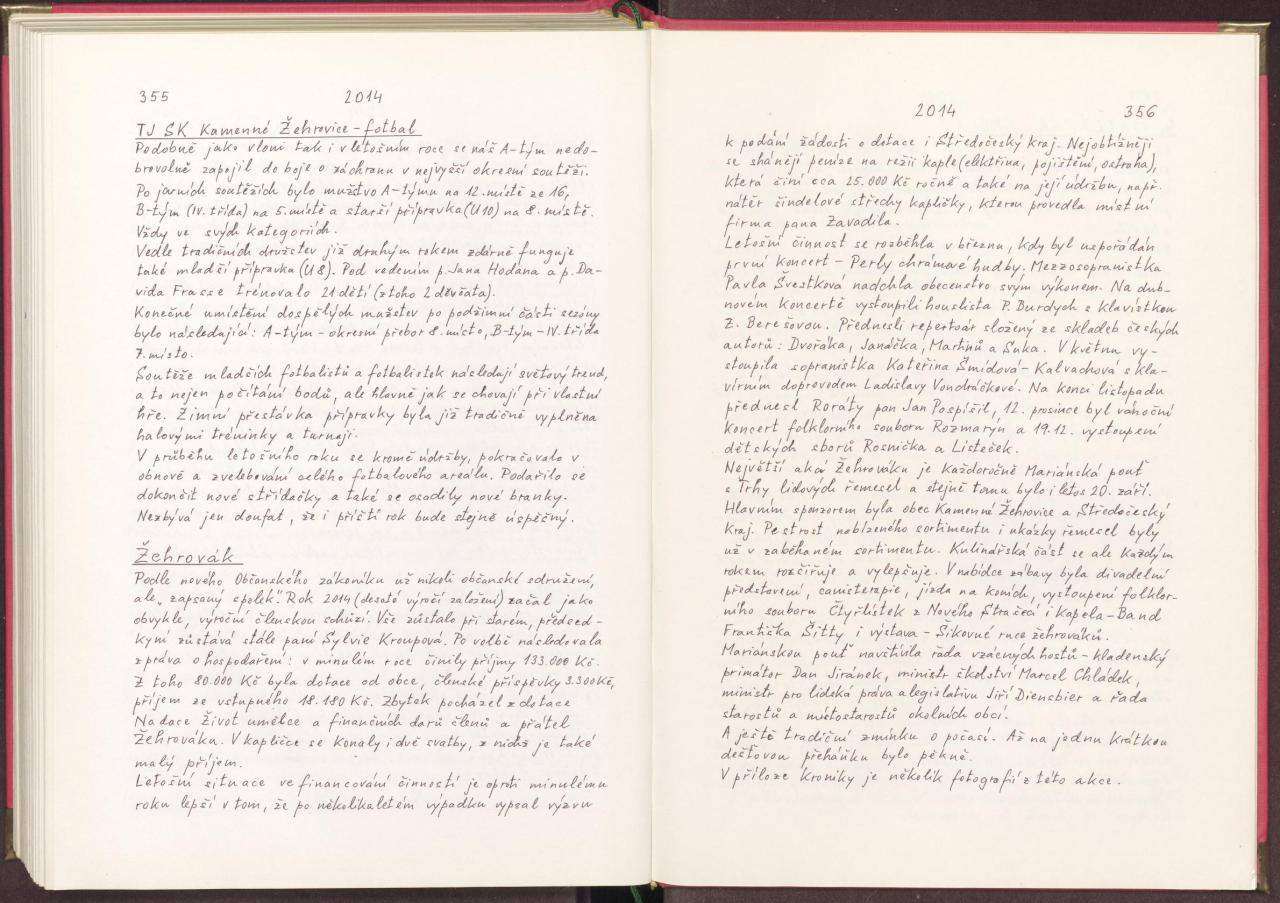 355 2014
TJ SK Kamenné Žehrovice - fotbal
Podobně jako vloni tak i v letošním roce se náš A-tým nedo-
brovolně zapojil do boje o záchranu v nejvyšší okresní soutěži.
Po jarních soutěžích bylo mužstvo A-týmu na 12. místě ze 16,
B-tým (IV. třída) na 5. místě a starší přípravka (U10) na 8. místě.
Vždy ve svých kategoriích.
Vedle tradičních družstev již druhým rokem zdárně funguje
také mladší přípravka (U8). Pod vedením p. Jana Hodana a p. Da-
vida Frasse trénovalo 21 dětí (z toho 2 děvčata).
Konečné umístění dospělých mužstev po podzimní části sezóny
bylo následující: A-tým - okresní přebor 8. místo, B-tým - IV. třída
7. místo.
Soutěže mladších fotbalistů a fotbalistek následují světový trend,
a to nejen počítání bodů, ale hlavně jak se chovají při vlastní
hře. Zimní přestávka přípravky byla již tradičně vyplněna
halovými tréninky a turnaji.
V průběhu letošního roku se kromě údržby, pokračovalo v
obnově a zvelebování celého fotbalového areálu. Podařilo se
dokončit nové střídačky a také se osadily nové branky.
Nezbývá jen doufat, že i příští rok bude stejně úspěšný.
Žehrovák
Podle nového Občanského zákoníku už nikoli občanské sdružení,
ale „zapsaný spolek". Rok 2014 (desáté výročí založení) začal jako
obvykle, výroční členskou schůzí. Vše zůstalo při starém, předsed-
kyní zůstává stále paní Sylvie Kroupová. Po volbě následovala
zpráva o hospodaření: v minulém roce činily příjmy 133.000 Kč.
Z toho 80.000 Kč byla dotace od obce, členské příspěvky 3.300 Kč,
příjem ze vstupného 18.180 Kč. Zbytek pocházel z dotace
Nadace Život umělce a finančních darů členů a přátel
Žehrováku. V kapličce se konaly i dvě svatby, z nichž je také
malý příjem.
Letošní situace ve financování činností je oproti minulému
roku lepší v tom, že po několikaletém výpadku vypsal výzvu
2014 356
k podání žádosti o dotace i Středočeský kraj. Nejobtížněji
se shánějí peníze na režii kaple (elektřina, pojištění, ostraha),
která činí cca 25.000 Kč ročně a také na její údržbu, např.
nátěr šindelové střechy kapličky, kterou provedla místní
firma pana Zavadila.
Letošní činnost se rozběhla v březnu, kdy byl uspořádán
první koncert - Perly chrámové hudby. Mezzosopranistka
Pavla Švestková nadchla obecenstvo svým výkonem. Na dub-
novém koncertě vystoupili houslista P. Burdych s klavistkou
Z. Berešovou. Přednesli repertoár složený ze skladeb českých
autorů: Dvořáka, Janáčka, Martinů a Suka. V květnu vy-
stoupila sopranistka Kateřina Šmídová - Kalvachová s kla-
vírním doprovodem Ladislavy Vondráčkové. Na konci listopadu
přednesl Roráty pan Jan Pospíšil, 12. prosince byl vánoční
koncert folklorního souboru Rozmarýn a 19.12. vystoupení
dětských sborů Rosnička a Lísteček.
Největší akcí Žehrováku je každoročně Mariánská pouť
s Trhy lidových řemesel a stejně tomu bylo i letos 20. září.
Hlavním sponzorem byla obec Kamenné Žehrovice a Středočeský
kraj. Pestrost nabízeného sortimentu i ukázky řemesel byly
už v zaběhaném sortimentu. Kulinářská část se ale každým
rokem rozšiřuje a vylepšuje. V nabídce zábavy byla divadelní
představení, canisterapie, jízda na koních, vystoupení folklor-
ního souboru Čtyřlístek z Nového Strašecí i kapela - Band
Františka Šitty, i výstava - Šikovné ruce žehrováků.
Mariánskou pouť navštívila řada vzácných hostů - kladenský
primátor Dan Jiránek, ministr školství Marcel Chládek,
ministr pro lidská práva a legislativu Jiří Diensbier a řada
starostů a místostarostů okolních obcí.
A ještě tradiční zmínku o počasí. Až na jednu krátkou
dešťovou přeháňku bylo pěkně.
V příloze kroniky je několik fotografií z této akce.